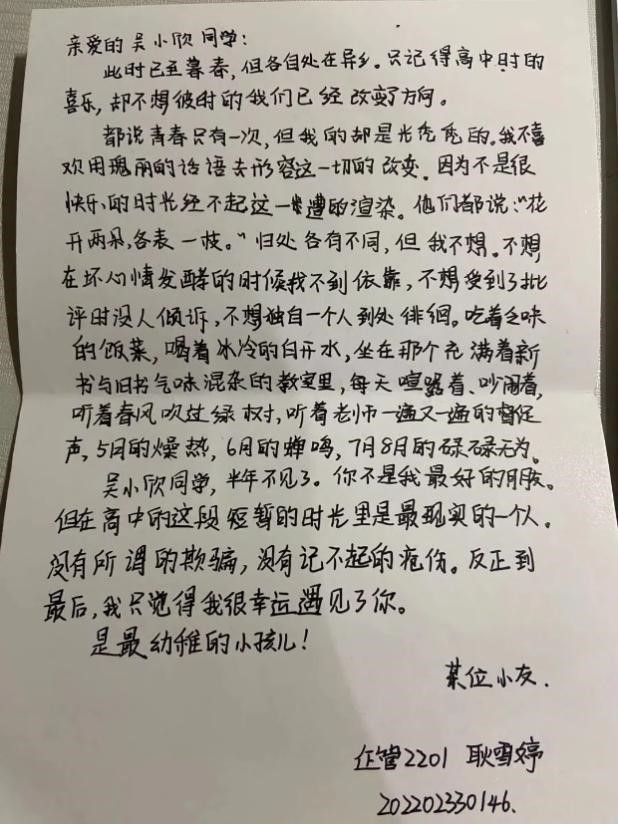 亲爱的吴小欣同学:
此时已至暮春,但各自处在异乡。只记得高中时的
喜乐,却不想彼时的我们已经改变了方向。
都说青春只有一次,但我的却是光秃秃的。我不喜
欢用瑰丽的话语去形容这一切的改变。因为不是很
快乐的时光经不起这一遭的渲染。他们都说:“花
开两朵,各表一枝。”归处各有不同,但我不想。不想
在坏心情发酵的时候找不到依靠,不想受到了批
评时没人倾诉,不想独自一个人到处徘徊。吃着乏味
的饭菜,喝着冰冷的白开水,坐在那个充满着新
书与旧书气味混杂的教室里,每天喧嚣着、吵闹着,
听着春风吹过绿树,听着老师一遍又一遍的督促
声,5月的燥热,6月的蝉鸣,7月8月的碌碌无为。
吴小欣同学,半年不见了。你不是我最好的朋友。
但在高中的这段短暂的时光里是最现实的一个人。
没有所谓的欺骗,没有记不起的疮伤。反正到
最后,我只觉得我很幸运遇见了你。
是最幼稚的小孩儿!
某位小友.
企管2201 耿雪婷
202202330146.